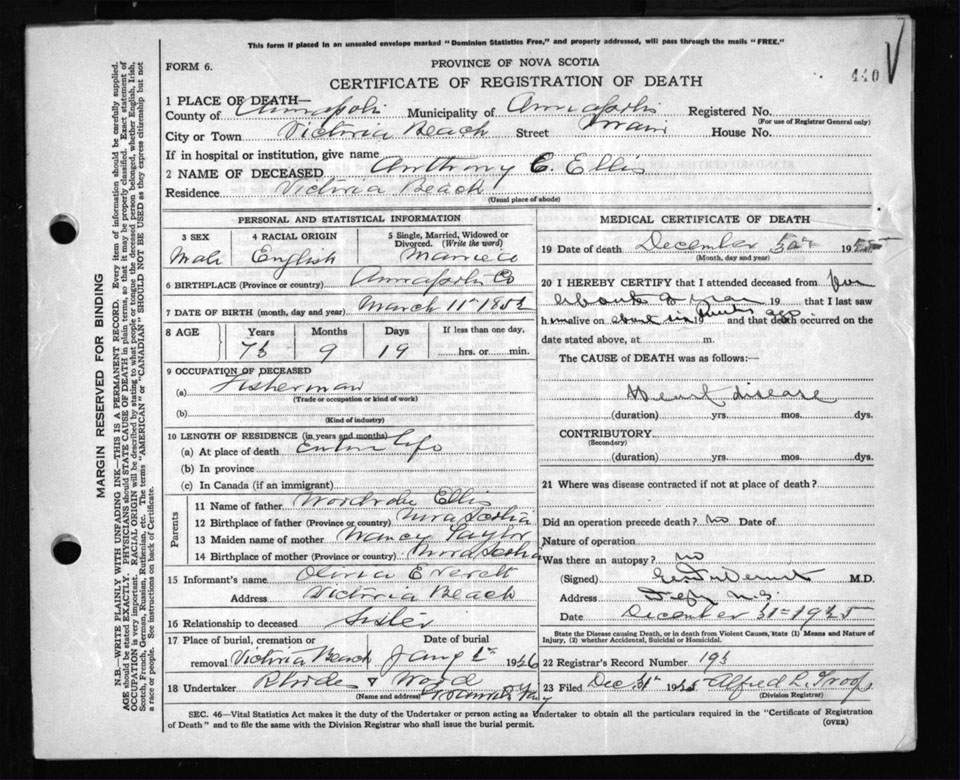 This form if placed in an unsealed envelope marked "Dominion Statistics Free," and properly addressed, will pass through the mails "FREE."
FORM 6.
PROVINCE OF NOVA SCOTIA
440
CERTIFICATE OF REGISTRATION OF DEATH
1 PLACE OF DEATH—
County of Annapolis Municipality of Annapolis Registered No.
(For use of Registrar General only)
City or Town Victoria Beach Street House No.
If in hospital or institution, give name
2 NAME OF DECEASED Anthony E. Ellis
Residence Victoria Beach
(Usual place of abode)
PERSONAL AND STATISTICAL INFORMATION
3 SEX
Male
4 RACIAL ORIGIN
English
5 Single, Married, Widowed or Divorced. (Write the word)
Married
6 BIRTHPLACE (Province or country) Annapolis Co
7 DATE OF BIRTH (month, day and year) March 11
8 AGE Years Months Days If less than one day.
9 19 hrs. or min.
9 OCCUPATION OF DECEASED
(a) Fisherman
(Trade or occupation or kind of work)
(b)
(Kind of industry)
10 LENGTH OF RESIDENCE (in years and months)
(a) At place of death Entire life
(b) In province
(c) In Canada (if an immigrant)
Parents
11 Name of father Ellis
12 Birthplace of father (Province or country) Nova Scotia
13 Maiden name of mother Nancy Taylor
14 Birthplace of mother (Province or country) Nova Scotia
15 Informant's name Olivia Everett
Address Victoria Beach
16 Relationship to deceased Sister
17 Place of burial, cremation or removal Victoria Beach
Date of burial
Jany 1926
18 Undertaker Rhodes & Wood
(Name and address)
MEDICAL CERTIFICATE OF DEATH
19 Date of death December 1925
(Month, day and year)
20 I HEREBY CERTIFY that I attended deceased from
about a year 19 that I last saw
h alive on about six weeks ago 19 and that death occurred on the
date stated above, at m.
The CAUSE of DEATH was as follows:
Heart disease
(duration) yrs. mos. dys.
CONTRIBUTORY
(Secondary)
(duration) yrs. mos. dys.
21 Where was disease contracted if not at place of death?
Did an operation precede death? no Date of
Nature of operation
Was there an autopsy? no
(Signed) M.D.
Address Digby N.S.
Date December 31st 1925
State the Disease causing Death, or in death from Violent Causes, State (1) Means and Nature of Injury, (2) whether Accidental, Suicidal or Homicidal.
22 Registrar's Record Number
23 Filed Dec 31st 1925 Alfred L. Troop
(Division Registrar)
SEC. 46—Vital Statistics Act makes it the duty of the Undertaker or person acting as Undertaker to obtain all the particulars required in the "Certificate of Registration
of Death" and to file the same with the Division Registrar who shall issue the burial permit.
(OVER)
MARGIN RESERVED FOR BINDING
N.B.—WRITE PLAINLY WITH UNFADING INK—THIS IS A PERMANENT RECORD. Every item of information should be carefully supplied.
AGE should be stated EXACTLY. PHYSICIANS should STATE CAUSE OF DEATH in plain terms, so that it may be properly classified. Exact statement of
OCCUPATION is very important. RACIAL ORIGIN will be described by stating to what people or tongue the deceased person belonged, whether English, Irish,
Scotch, French, German, Russian, Ruthenian, etc. The terms "AMERICAN" or "CANADIAN" SHOULD NOT BE USED as they express citizenship but not
a race or people. See instructions on back of Certificate.